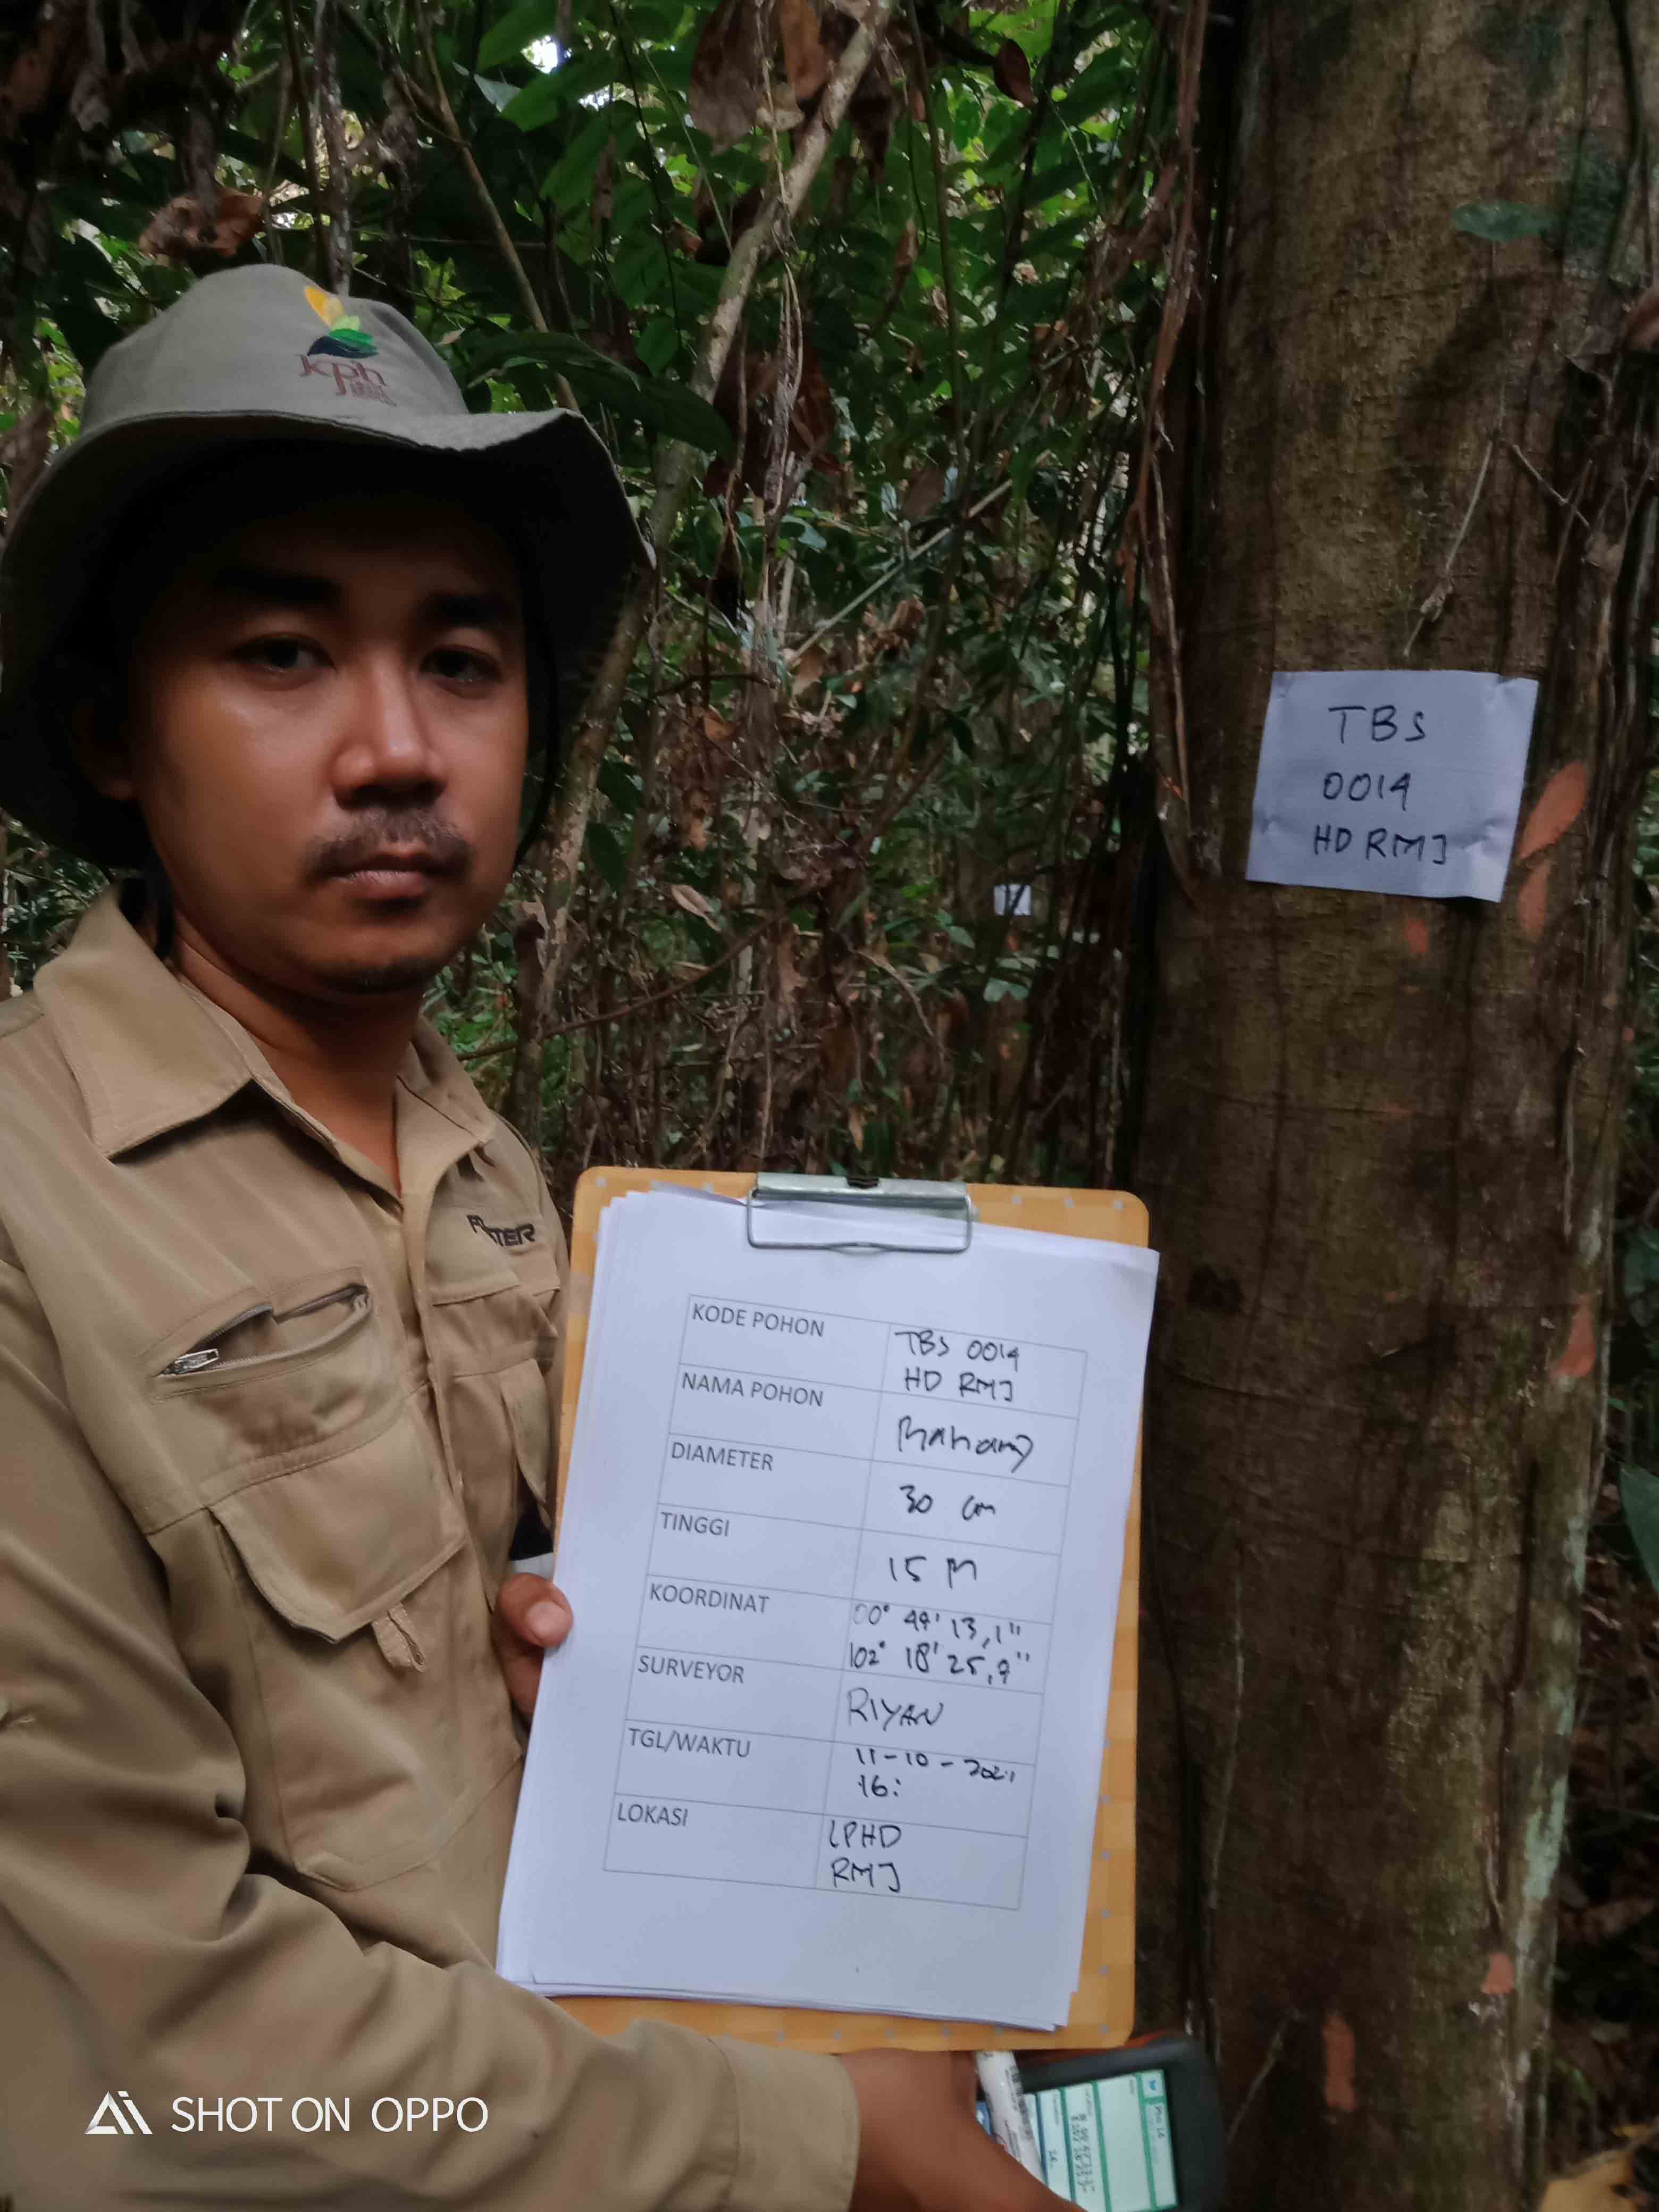 kph
TBS
0014
HD RMJ
KODE POHON
TBS 0014
HD RMJ
NAMA POHON
Mahang
DIAMETER
30 cm
TINGGI
15 M
KOORDINAT
00° 44' 13,1"
102° 18' 25,9"
SURVEYOR
RIYAN
TGL/WAKTU
11-10-2021
16:
LOKASI
LPHD
RMJ
SHOT ON OPPO